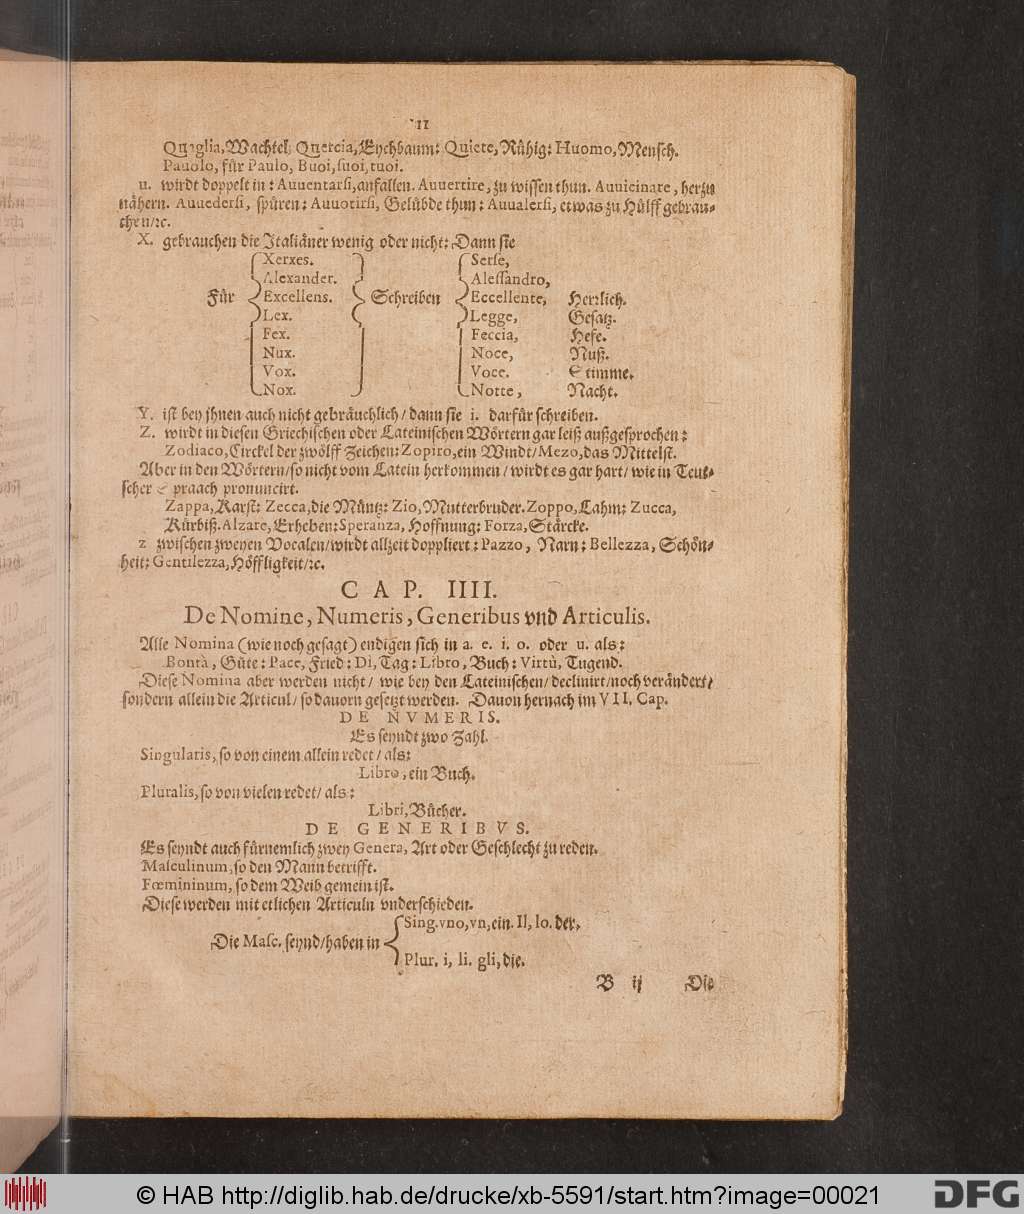 11
Quaglia, Wachtel: Quercia, Eychbaum: Quiete, Růhig: Huomo, Mensch.
Pauolo, fůr Paulo, Buoi, suoi, tuoi.
u. wirdt doppelt in: Auuentarsi, anfallen. Auuertire, zu wissen thun. Auuicinare, herzu
nähern. Auuedersi, spůren: Auuotirsi, Gelůbde thun: Auualersi, etwas zu Hůlff gebrau-
chen/ꝛc.
X. gebrauchen die Italiäner wenig oder nicht: Dann sie
Xerxes. Serse,
Alexander. Alessandro,
Fůr Excellens. Schreiben Eccellente, Herꝛlich.
Lex. Legge, Gesatz.
Fex. Feccia, Hefe.
Nux. Noce, Nuß.
Vox. Voce. Stimme.
Nox. Notte, Nacht.
Y. ist bey jhnen auch nicht gebräuchlich/ dann sie i. darfůr schreiben.
Z. wirdt in diesen Griechischen oder Lateinischen Wörtern gar leiß außgesprochen:
Zodiaco, Circkel der zwölff Zeichen: Zopiro, ein Windt/ Mezo, das Mittelst.
Aber in den Wörtern/ so nicht vom Latein herkommen/ wirdt es gar hart/ wie in Teut-
scher Spraach pronuncirt.
Zappa, Karst: Zecca, die Můntz: Zio, Mutterbruder. Zoppo, Lahm: Zucca,
Kůrbiß. Alzare, Erheben: Speranza, Hoffnung: Forza, Stärcke.
z zwischen zweyen Vocalen/ wirdt allzeit doppliert: Pazzo, Narn: Bellezza, Schön-
heit: Gentilezza, Höffligkeit/ꝛc.
CAP. IIII.
De Nomine, Numeris, Generibus vnd Articulis.
Alle Nomina (wie noch gesagt) endigen sich in a. e. i. o. oder u. als:
Bontà, Gůte: Pace, Fried: Dì, Tag: Libro, Buch: Virtù, Tugend.
Diese Nomina aber werden nicht/ wie bey den Lateinischen/ declinirt/ noch verändert/
sondern allein die Articul/ so dauorn gesetzt werden. Dauon hernach im VII. Cap.
DE NVMERIS.
Es seyndt zwo Zahl.
Singularis, so von einem allein redet/ als:
Libro, ein Buch.
Pluralis, so von vielen redet/ als:
Libri, Bůcher.
DE GENERIBVS.
Es seyndt auch fůrnemlich zwey Genera, Art oder Geschlecht zu reden.
Masculinum, so den Mann betrifft.
Fœmininum, so dem Weib gemein ist.
Diese werden mit etlichen Articuln vnderschieden.
Sing. vno, vn, ein. Il, lo. der.
Die Masc. seynd/ haben in
Plur. i, li. gli, die.
B ij Die
© HAB http://diglib.hab.de/drucke/xb-5591/start.htm?image=00021
DFG